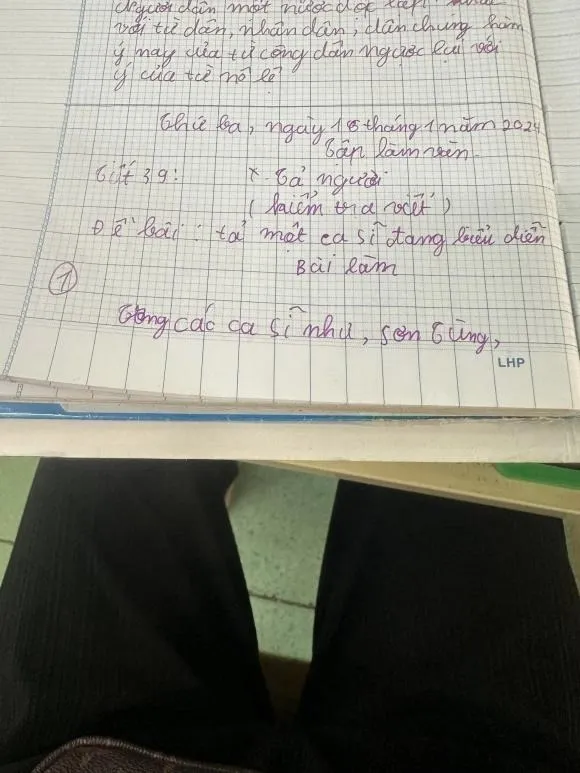 Người dân một nước độc lập.
với từ dân, nhân dân, dân chúng hàm
ý này của từ công dân ngược lại với
ý của từ nô lệ
Thứ ba, ngày 16 tháng 1 năm 2024
Tập làm văn.
Tiết 39: x. Tả người
(kiểm tra viết)
Đề bài: tả một ca sĩ đang biểu diễn
Bài làm
1
Trong các ca sĩ như, sơn tùng,
LHP